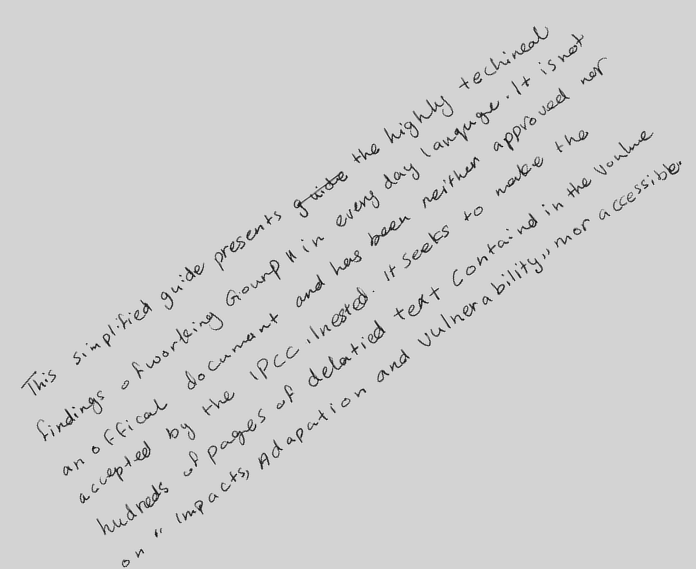 This simplified guide presents guide the highly techineal
findings of working Giounp II in every day languge. It is not
an offical documant and has been neithen approved nor
accepted by the IPCC. Inested. It seeks to make the
hudreds of pages of delatied text Containd in the Voulme
on "Impacts, Adapation and Vulnerability,, mor accessible.